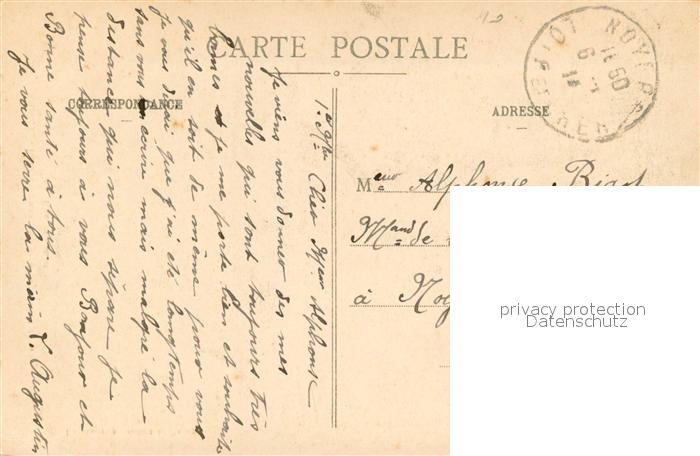 CARTE POSTALE
CORRESPONDANCE
ADRESSE
NOYERS
11 50
6
Cher Mr Alphonse
Je viens vous donner des mes
nouvelles qui sont toujours très
bonnes et je me porte bien et souhaite
qu'il en soit de même pour vous
je vous dirai que j'ai été longtemps
sans vous mais malgré la
distance qui nous sépare je
pense toujours à vous Bonjour et
Bonne santé à tous.
Je vous serre la main L. Augustin
Alphonse
Mand de
à Noy
privacy protection
Datenschutz